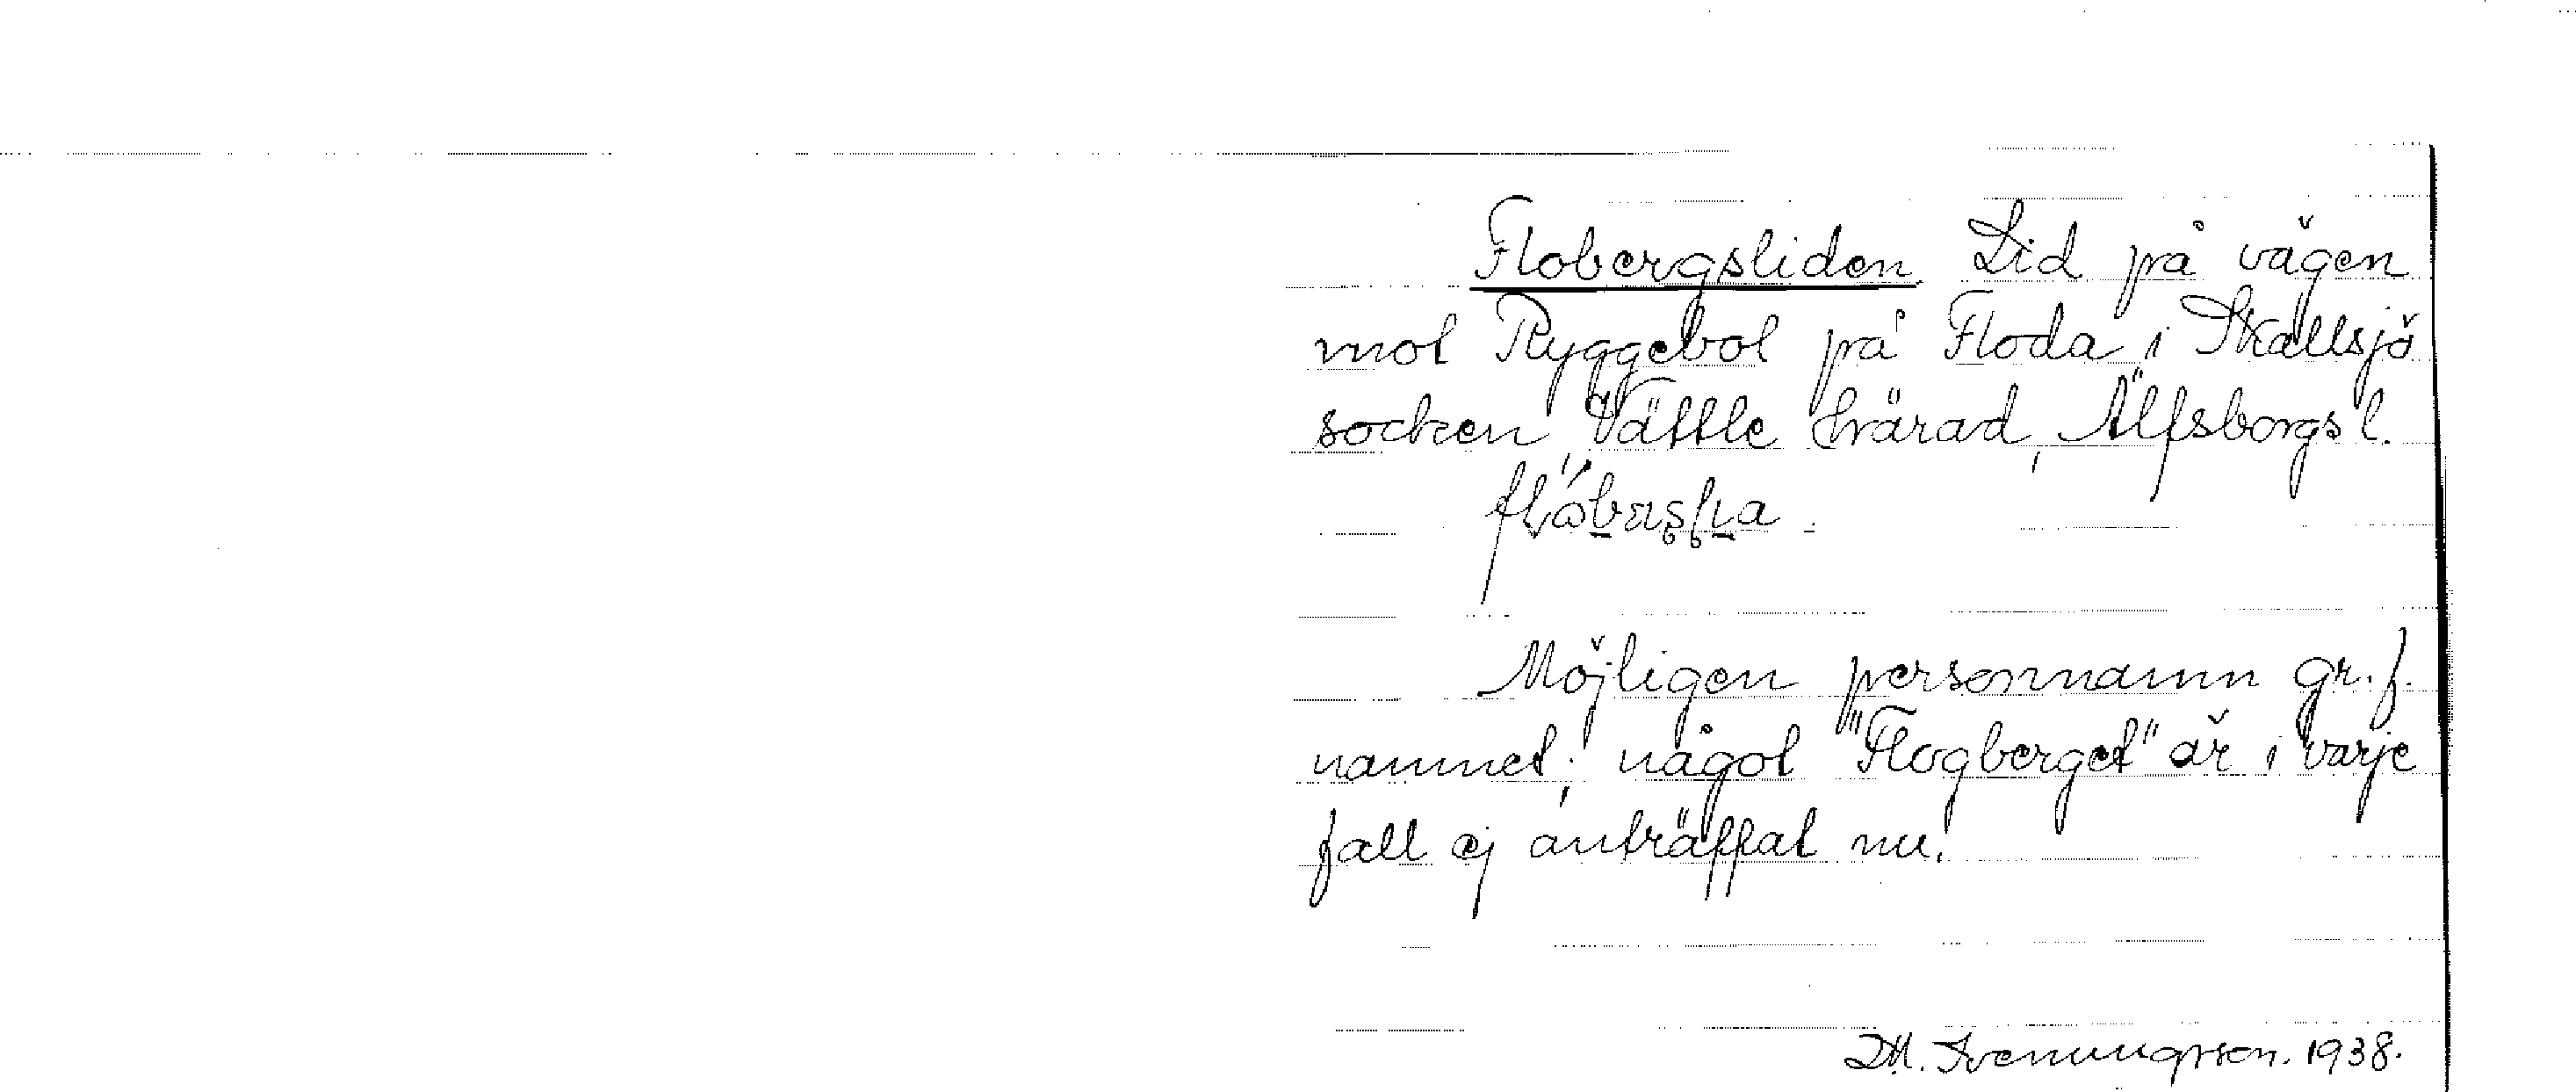 Flobergsliden Lid på vägen
mot Ryggebol på Floda i Skallsjö
socken, Vättle härad, Älfsborgs l.
Möjligen personnamn gr. f.
namnet; något "Flogberget" är i varje
fall ej anträffat nu.
1938.